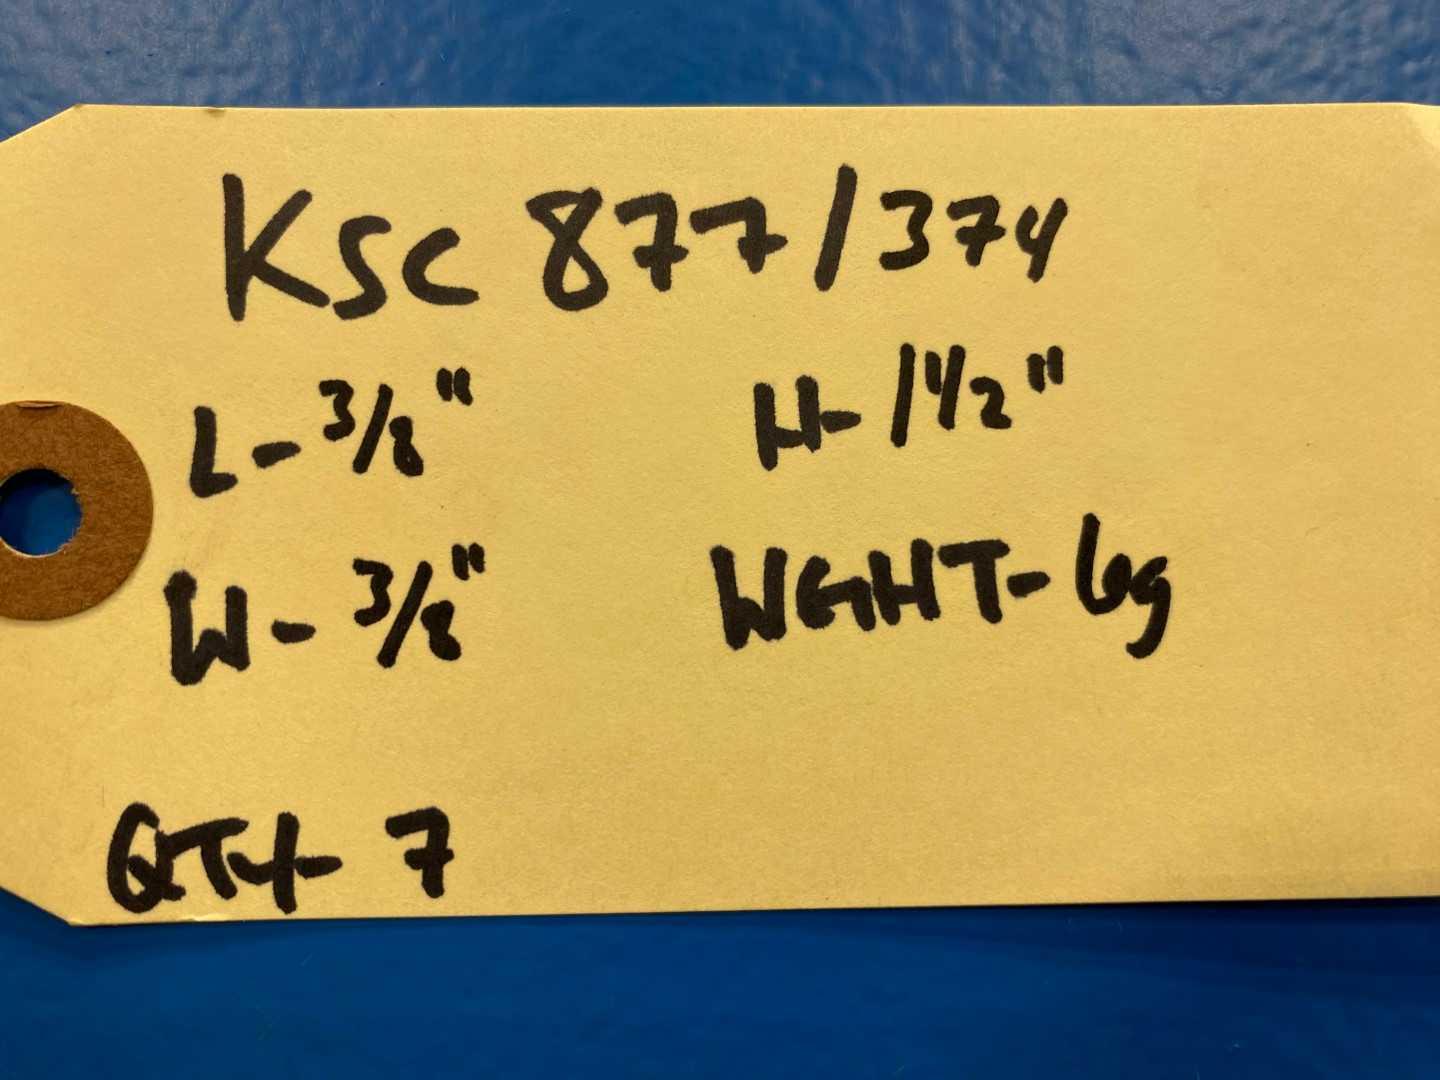 KSC 877/374
L-3/8" H-1 1/2"
W-3/8" WGHT-6g
QTY-7